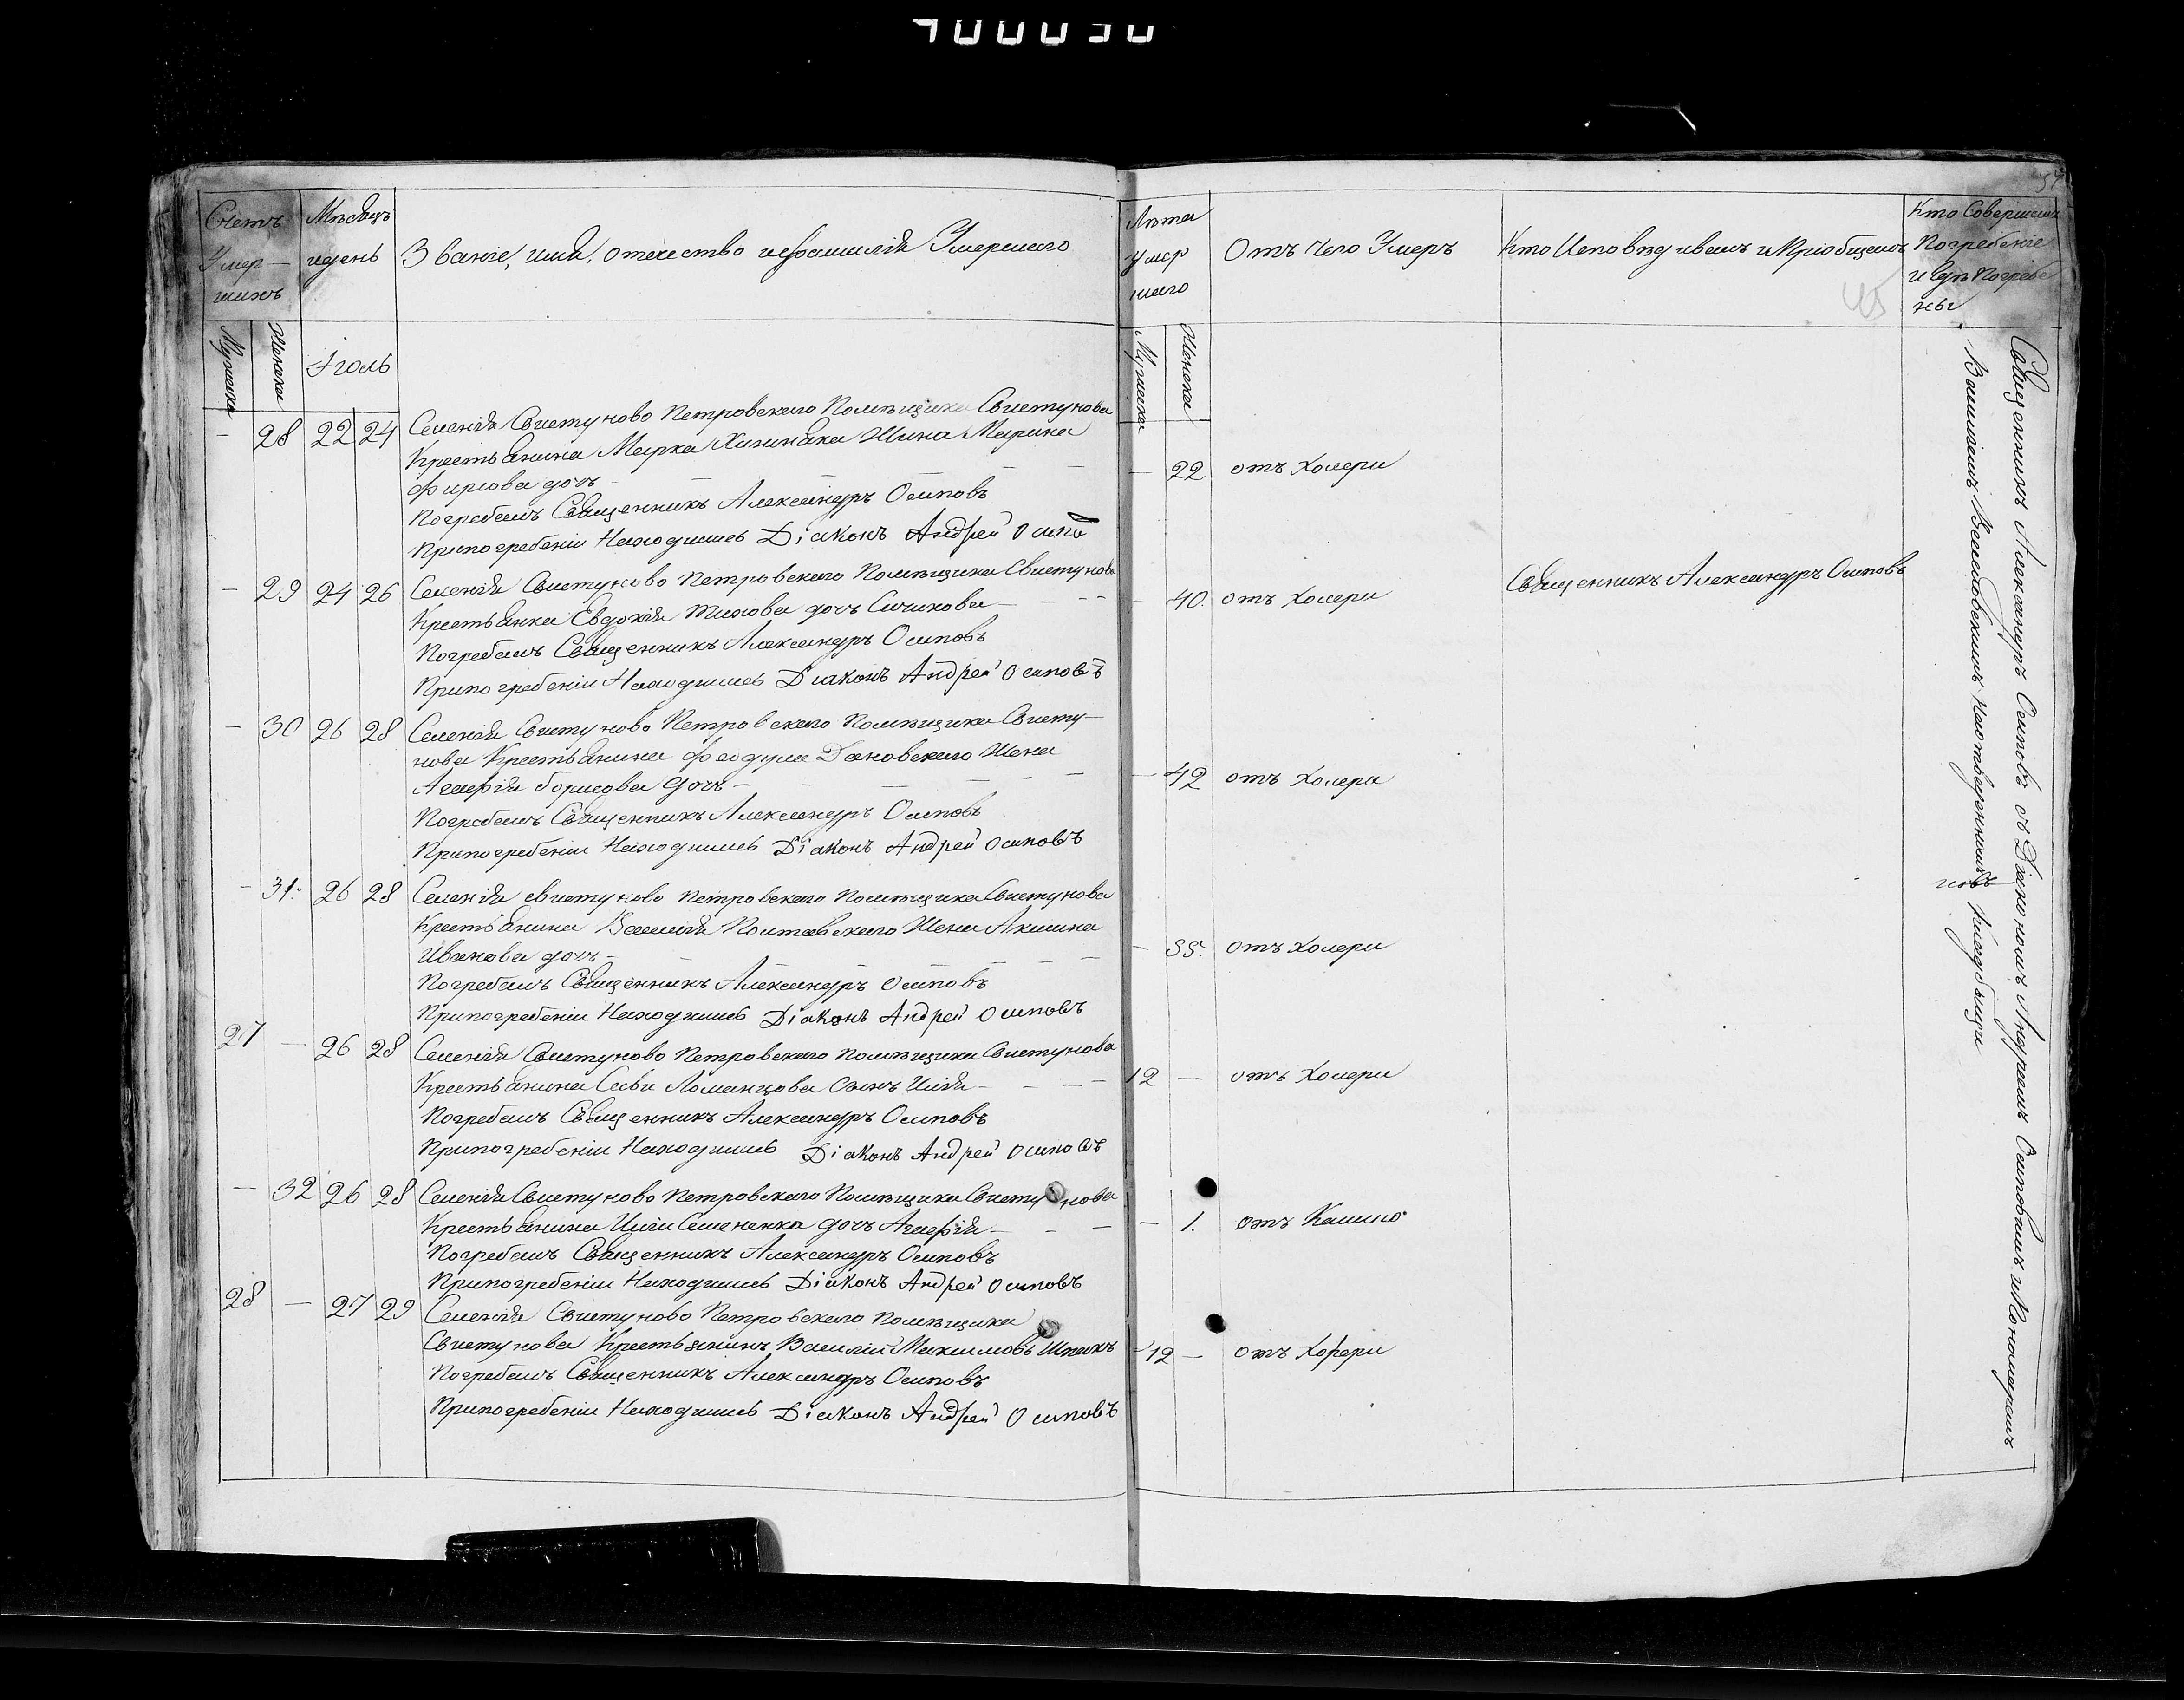 57
Счетъ
Умер—
шихъ
Мѣсяцъ
и день
Званіе, имя, отечество и фамилія Умершаго
Лѣта
Умер
шаго
Отъ Чего Умеръ
Кто Исповѣдивалъ и Пріобщалъ
Кто Совершалъ
Погребеніе
и Гдѣ Погребе
ны
Мужеска
Женска
Іюль
Мужеска
Женска
— 28 22 24 Селенія Свистуново Петровскаго Помѣщика Свистунова
Крестьянина Марка Жина Марина
Фирсова дочь — — — — —
Погребалъ Священникъ Александръ Осиповъ
Припогребеніи Находился Діаконъ Андрей Осипо
— 22 отъ Холери
— 29 24 26 Селенія Свистуново Петровскаго Помѣщика Свистунова
Крестьянка Евдокія Тихова дочь Сичикова — — —
Погребалъ Священникъ Александръ Осиповъ
Припогребеніи Находился Діаконъ Андрей Осиповъ
— 40. отъ Холери
Священникъ Александръ Осиповъ
— 30 26 28 Селенія Свистуново Петровскаго Помѣщика Свисту—
нова Крестьянина Феодула Дановскаго Жена
Агафія борисова Дочь — — — —
Погребалъ Священникъ Александръ Осиповъ
Припогребеніи Находился Діаконъ Андрей Осиповъ
— 42 отъ Холери
— 31. 26 28 Селенія свистуново Петровскаго Помѣщика Свистунова
Крестьянина Василія Полтавскаго Жена Акилина
Иванова дочь — — — — —
Погребалъ Священникъ Александръ Осиповъ
Припогребеніи Находился Діаконъ Андрей Осиповъ
— 55. отъ холери
27 — 26 28 Селенія Свистуново Петровскаго помѣщика Свистунова
Крестьянина Сави Ломанцова Синъ Илія — — —
Погребалъ Священникъ Александръ Осиповъ
Припогребеніи Находился Діаконъ Андрей Осиповъ
12 — отъ Холери
— 32 26 28 Селенія Свистуново Петровскаго Помѣщика Свистунова
Крестьянина Иліи Семененка дочь Агафія — — —
Погребалъ Священникъ Александръ Осиповъ
Припогребеніи Находился Діаконъ Андрей Осиповъ
— 1. отъ Кашлю
28 — 27 29 Селенія Свистуново Петровскаго помѣщика
Свистунова Крестьянинъ Василій Максимовъ Шпакъ
Погребалъ Священникъ Александръ Осиповъ
Припогребеніи Находился Діаконъ Андрей Осиповъ
12 — отъ Холери
Священникъ Александръ Осиповъ съ Діякономъ Андреемъ Осиповимъ и Пономаремъ
Василіемъ на отведенномъ Кладбищи